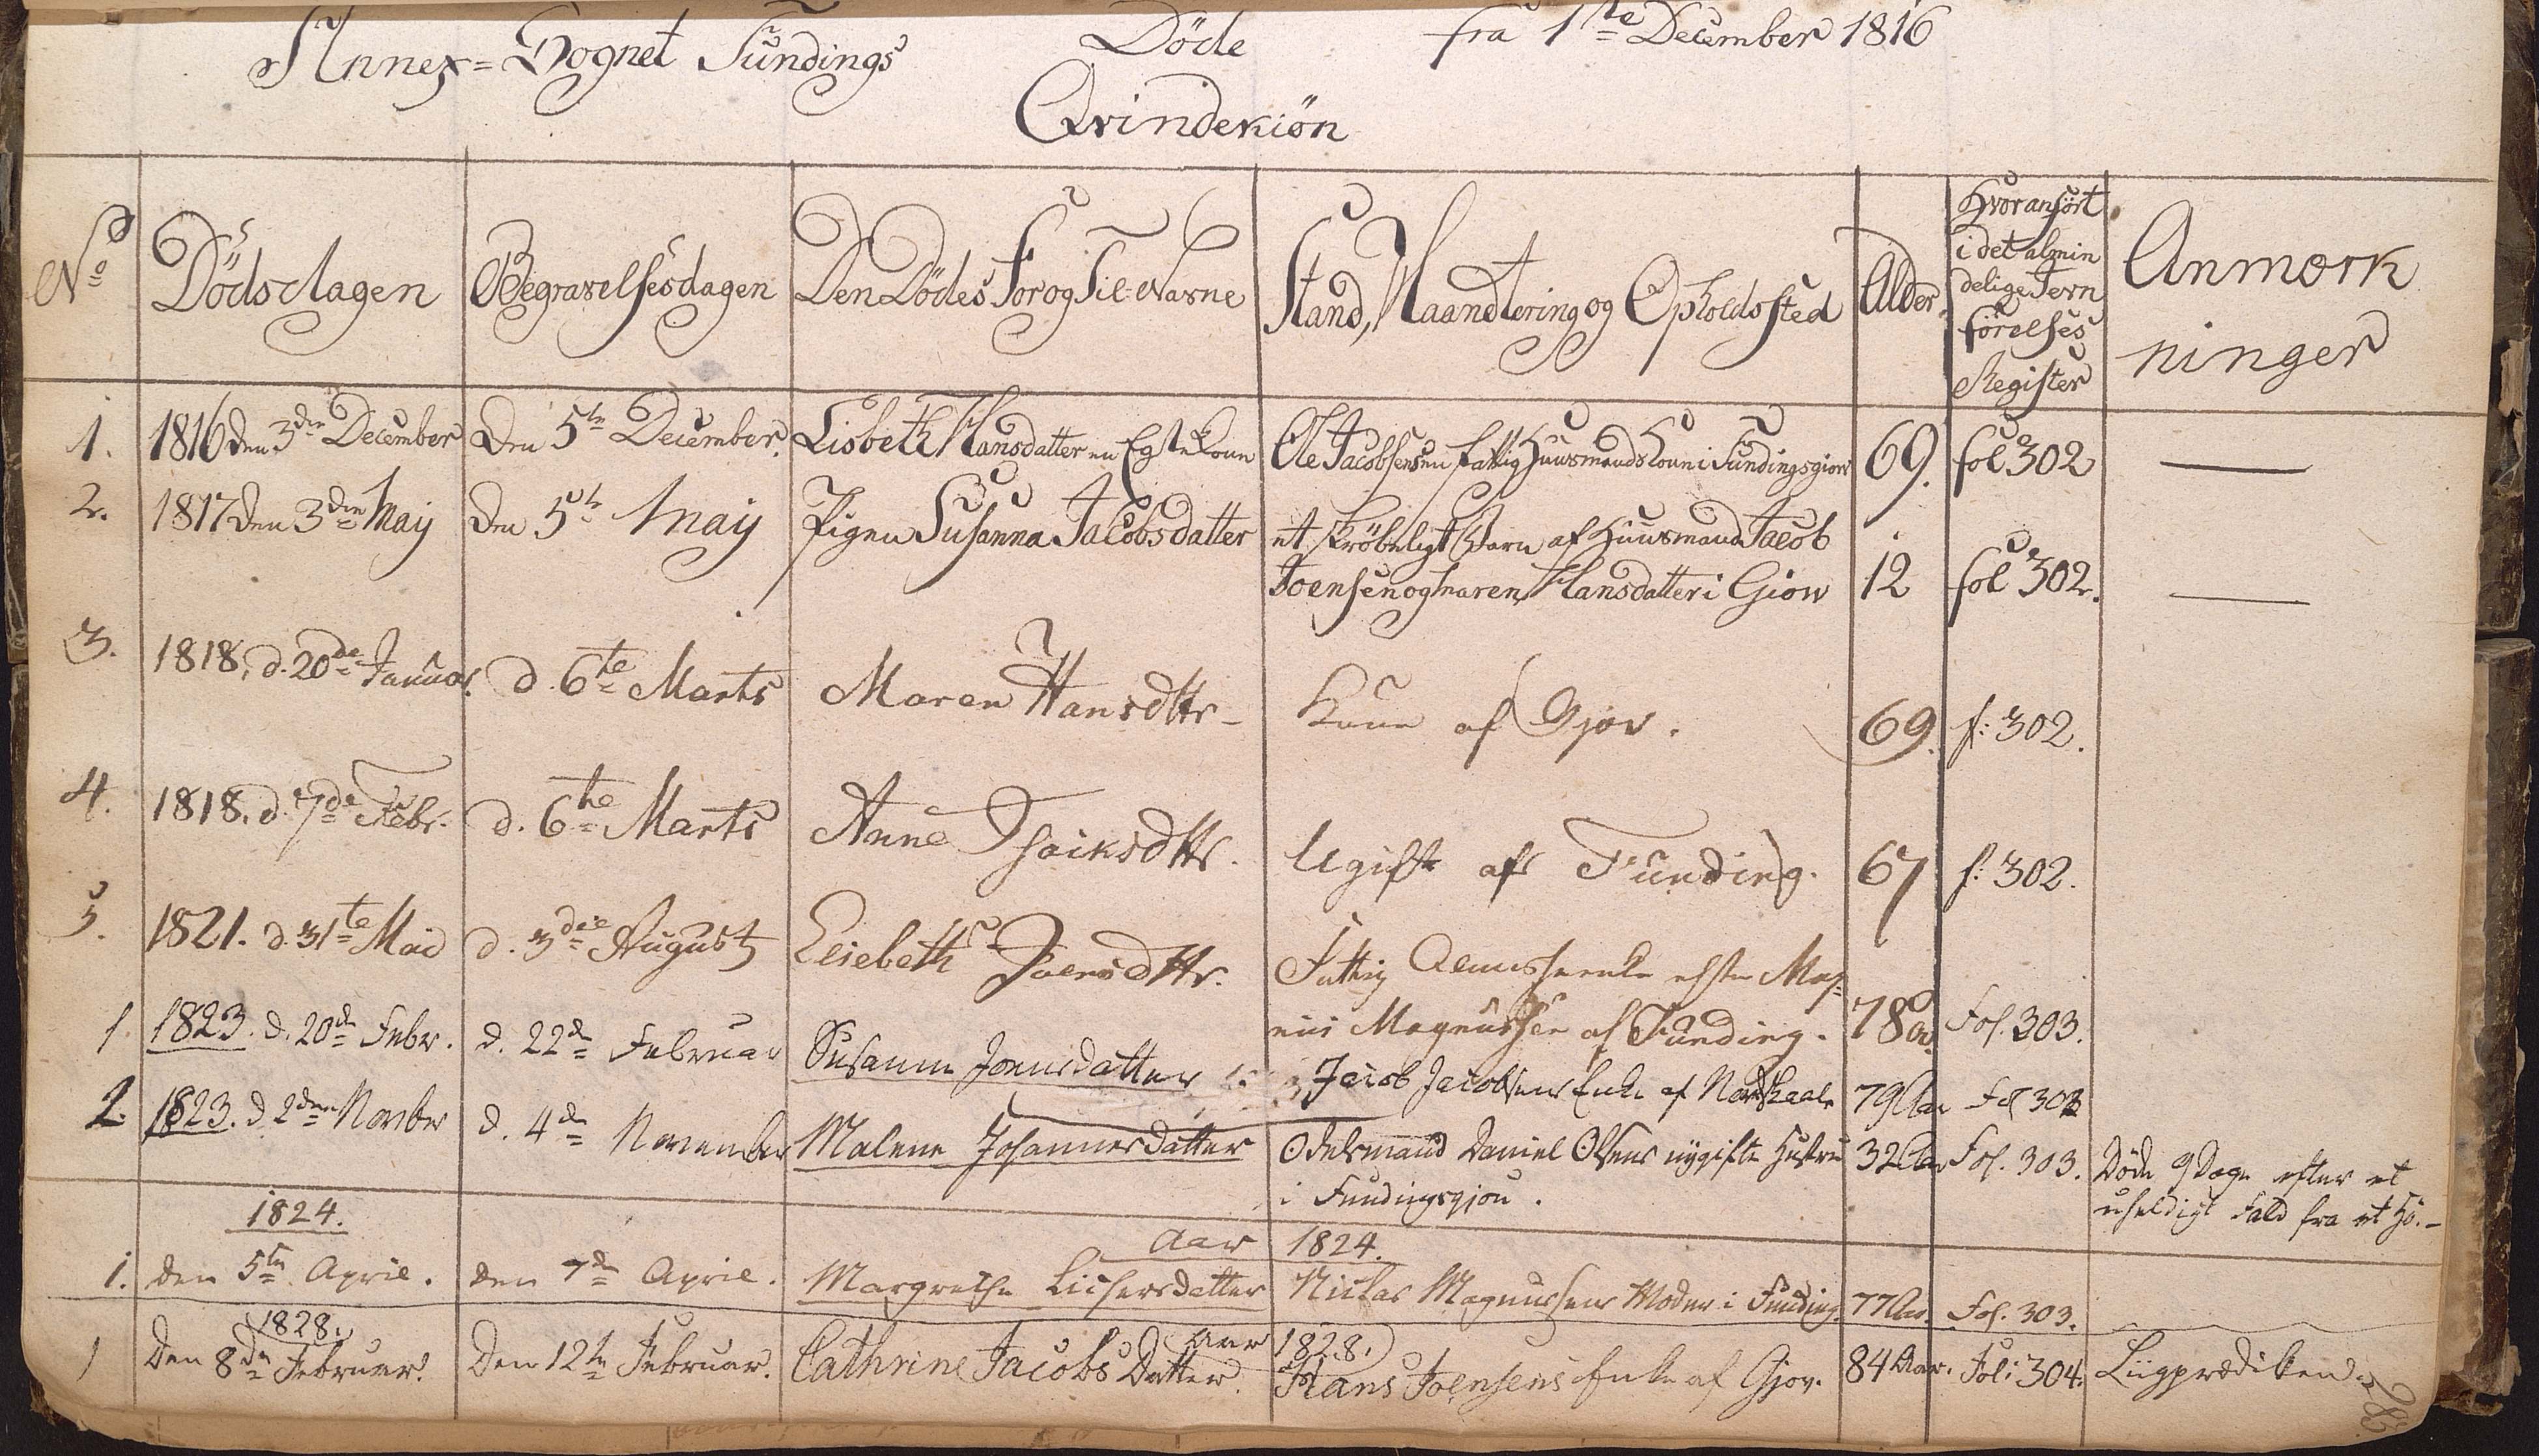 Annex=Sognet Fundings Döde fra 1te December 1816
Qvindekiön
No Dödsdagen Begravelsesdagen Den Dödes For og Til=Navne Stand, Haandtering og Opholdssted Alder Hvor anfört
i det almin
delige Jevn
förelses
Register Anmærk
ninger
1. 1816 den 3den December Den 5te December. Lisbeth Hansdatter en Egtekone Ole Jacobsens en fattig Huusmands Kone i Fundingsgiow 69. fol 302
2. 1817 den 3den Maij den 5te Maij Pigen Susanna Jacobsdatter et skröbeligt Barn af Huusmand Jacob
Joensen og Maren Hansdatter i Giow 12 fol 302.
3. 1818, d. 20de Januar. d. 6te Marts Maren Hansdttr Kone af Gjov. 69. f: 302.
4. 1818. d. 7de Febr. d. 6te Marts Anne Isaiksdttr. Ugift af Funding. 67 f: 302.
5. 1821. d. 31te Mai d. 3die August Elsebeth Joensdttr. Fattig Almisseenke efter Mag=
nus Magnussen af Funding. 78 Fol. 303.
1 1823. d. 20de Febr. d. 22de Februar Susanne Joensdatter Jacob Jacobsens Enke af Nordskaale 79 Aar Fol 303
2. 1823. d 2den Novbr d. 4de November Malene Johannesdatter Odelsmand Daniel Olsens nygifte Hustru
i Fundingsgjou. 32 Aar Fol. 303. Döde 9 Dage efter et
uheldigt Fald fra et Hö.-
1824. Aar 1824.
1. den 5te April. den 7de April. Margrethe Lichersdatter Niclas Magnussens Moder i Funding. 77 Aar. Fol. 303.
1828. Aar 1828.
1 Den 8de Februar. Den 12te Februar. Cathrine Jacobs Datter. Hans Joensens Enke af Gjov. 84 Aar. Fol: 304. Liigprædiken.